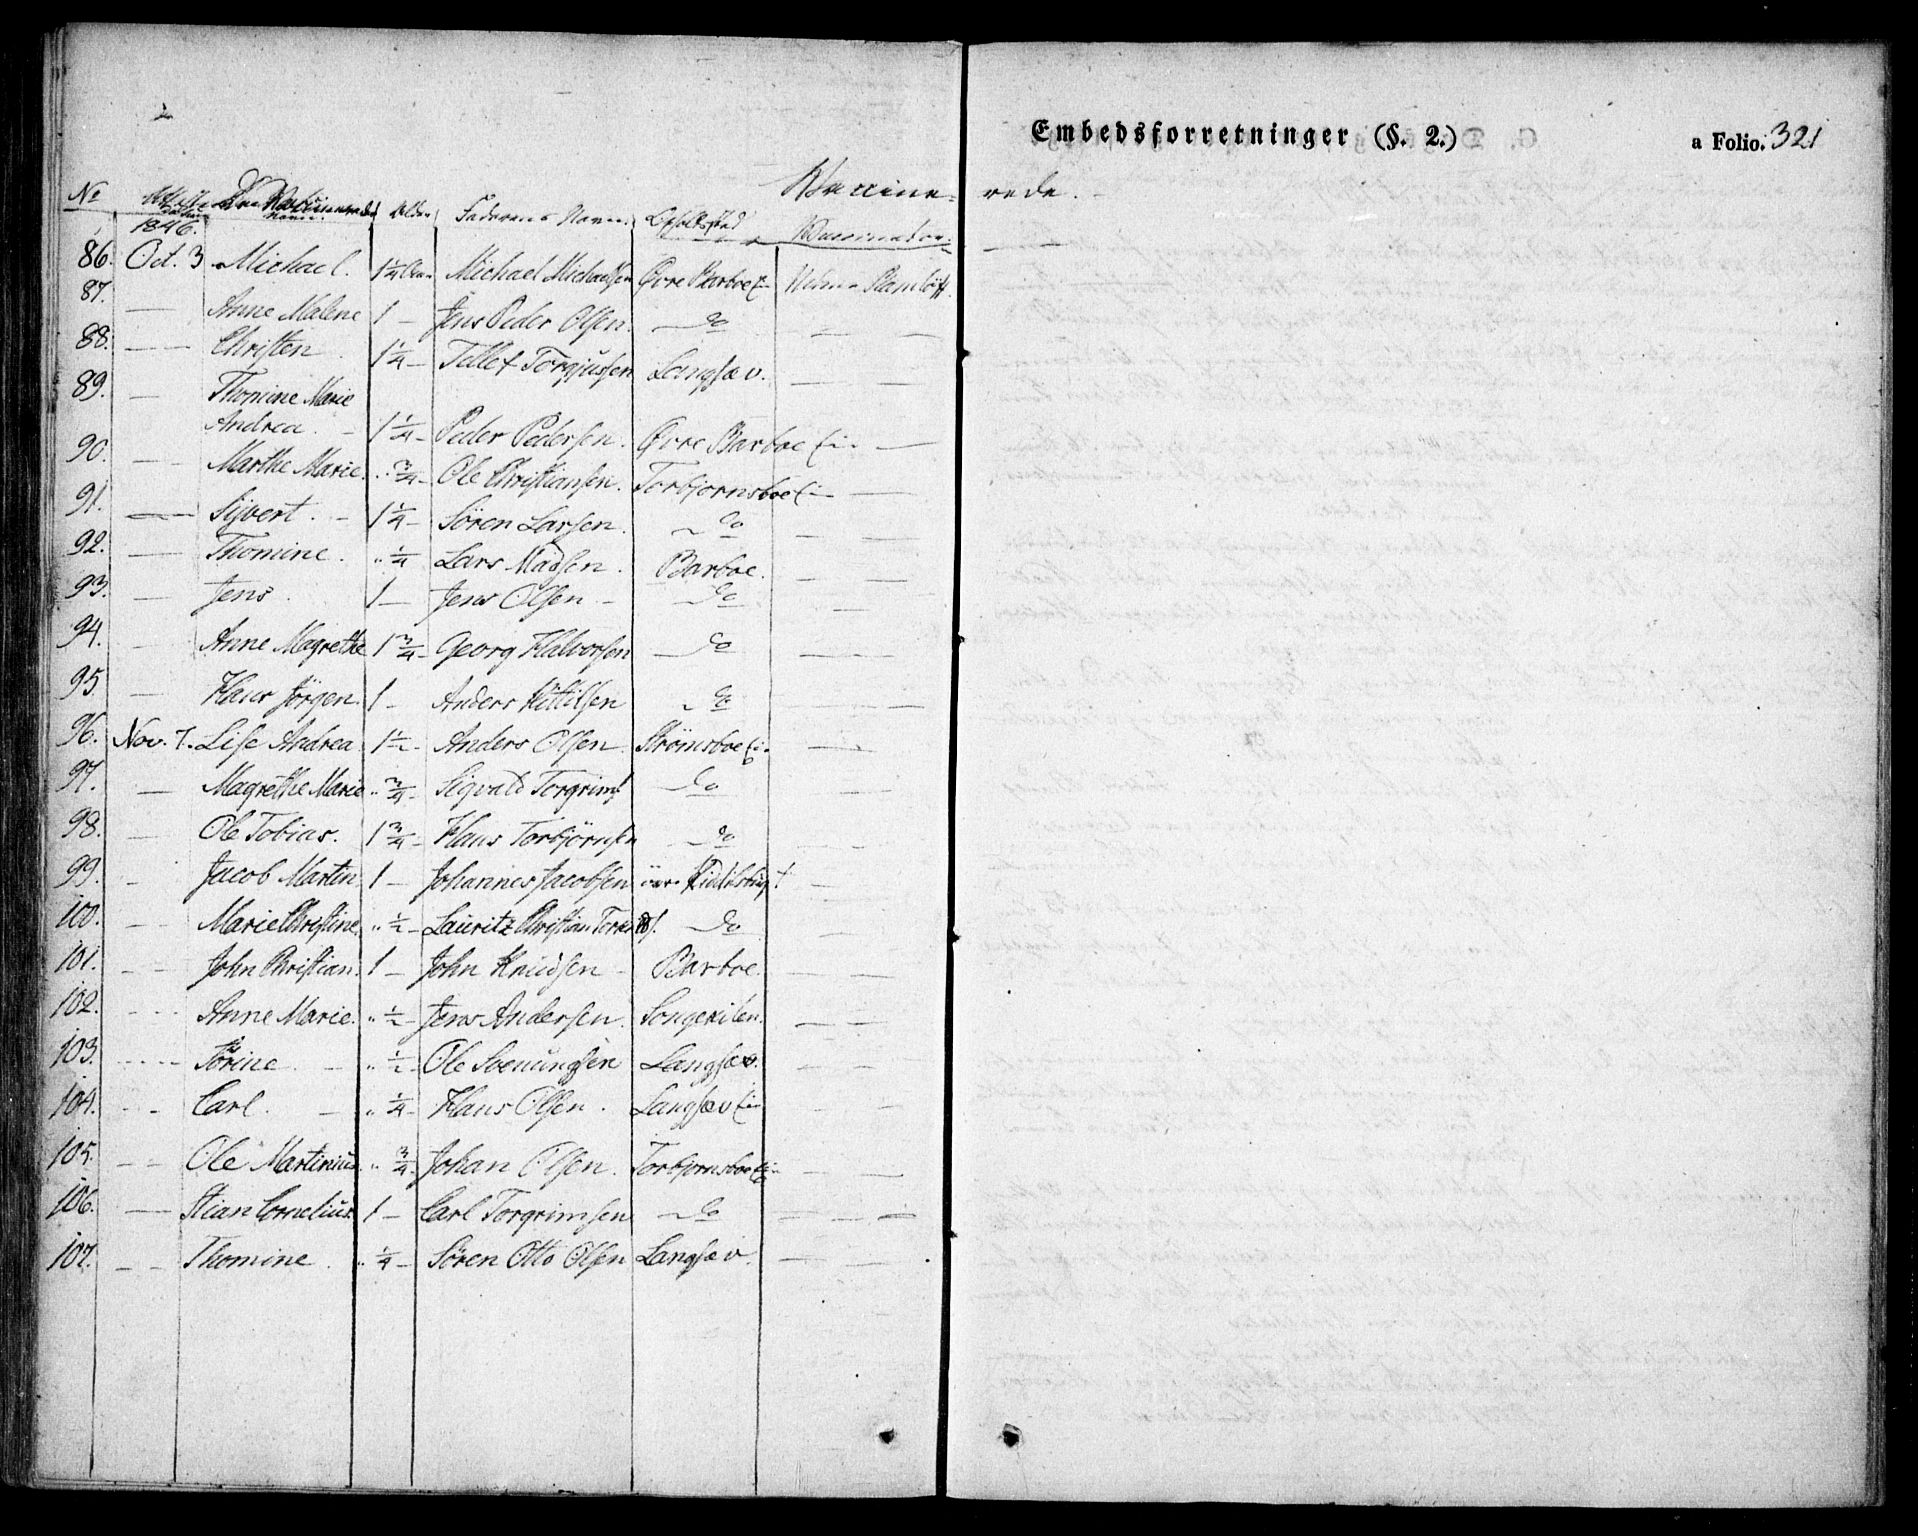 Embedsforretninger (§. 2.)
a Folio. 321
Vaccine-rede.
No Attestens Datum Den Vaccineredes Navn. Alder Faderens Navn. Opholdssted Vaccinateur.
1846.
86. Oct. 3 Michael. 1 1/4 Michael Michaelsen Øvre Barboe Ei-
87. — Anne Malene 1 — Jens Peder Olsen. — Do — —
88. — Christen. 1 1/4 — Tellef Torgjussen Langsæv. — —
89. — Thomine Marie
Andrea. — 1 1/4 — Peder Pedersen. Øvre Barboe Ei- —
90. — Marthe Marie. " 3/4 — Ole Christiansen. Torbjornsboe Ei- —
91. — Sijvert. — 1 1/4 — Sören Larsen. — Do — — —
92. — Thomine. " 1/4 Lars Madsen. Barboe. — —
93. — Jens. 1 — Jens Olsen — — Do — —
94. — Anne Magrethe 1 3/4 — Georg Halvorsen — Do — —
95 — Hans Jörgen. 1 — Anders Kittilsen — Do — —
96. Nov. 7. Lise Andrea 1 1/2 — Anders Olsen Strömsboe Ei- —
97. — Magrethe Marie " 3/4 — Sigvald Torgrims. — Do — —
98. — Ole Tobias. 1 3/4 — Hans Torbjörnsen — Do — —
99. — Jacob Martin 1 — Johannes Jacobsen övre —
100. — Marie Christine. " 1/2 — Lauritz Christian — Do — —
101. — John Christian. 1 — John Knudsen — Barboe. — —
102. — Anne Marie. " 1/2 — Jens Andersen. Songekilen. — —
103. — Torine. — " 1/2 — Ole Svenungsen Langsæv. — —
104. — Carl. — " 1/4 — Hans Olsen. Langsæv Ei- — —
105. — Ole Martinius. " 3/4 — Johan Olsen. Torbjornsboe Ei- — —
106. — Stian Cornelius. 1 — Carl Torgrimsen — Do — — —
107. — Thomine. " 1/4 — Sören Otto Olsen Langsæv. — —